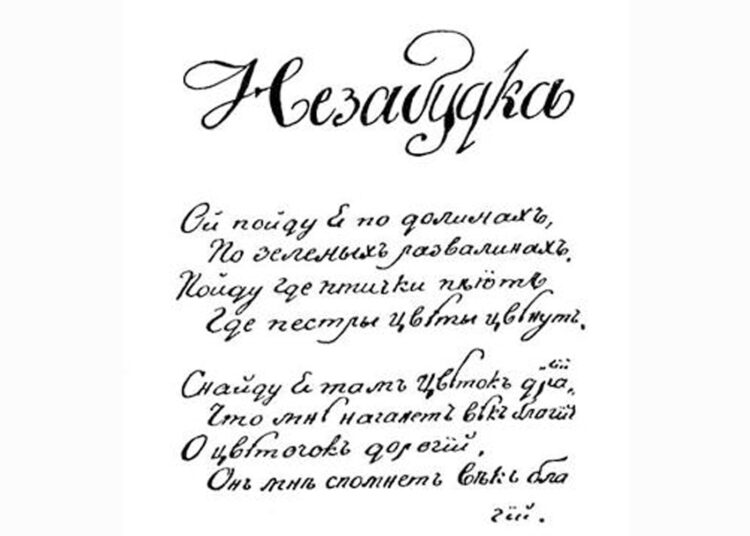 Незабудка
Ой пойду Я по долинахъ,
По зеленыхъ развалинахъ.
Пойду где птички пѣютъ
Где пестры цвѣты цвѣнутъ.
Снайду Я тамъ Цвѣтокъ дра гій,
Что мнѣ наганетъ вѣкъ благій
О цвѣточокъ дорогій.
Онъ мнѣ спомнетъ вѣкъ бла
гій.